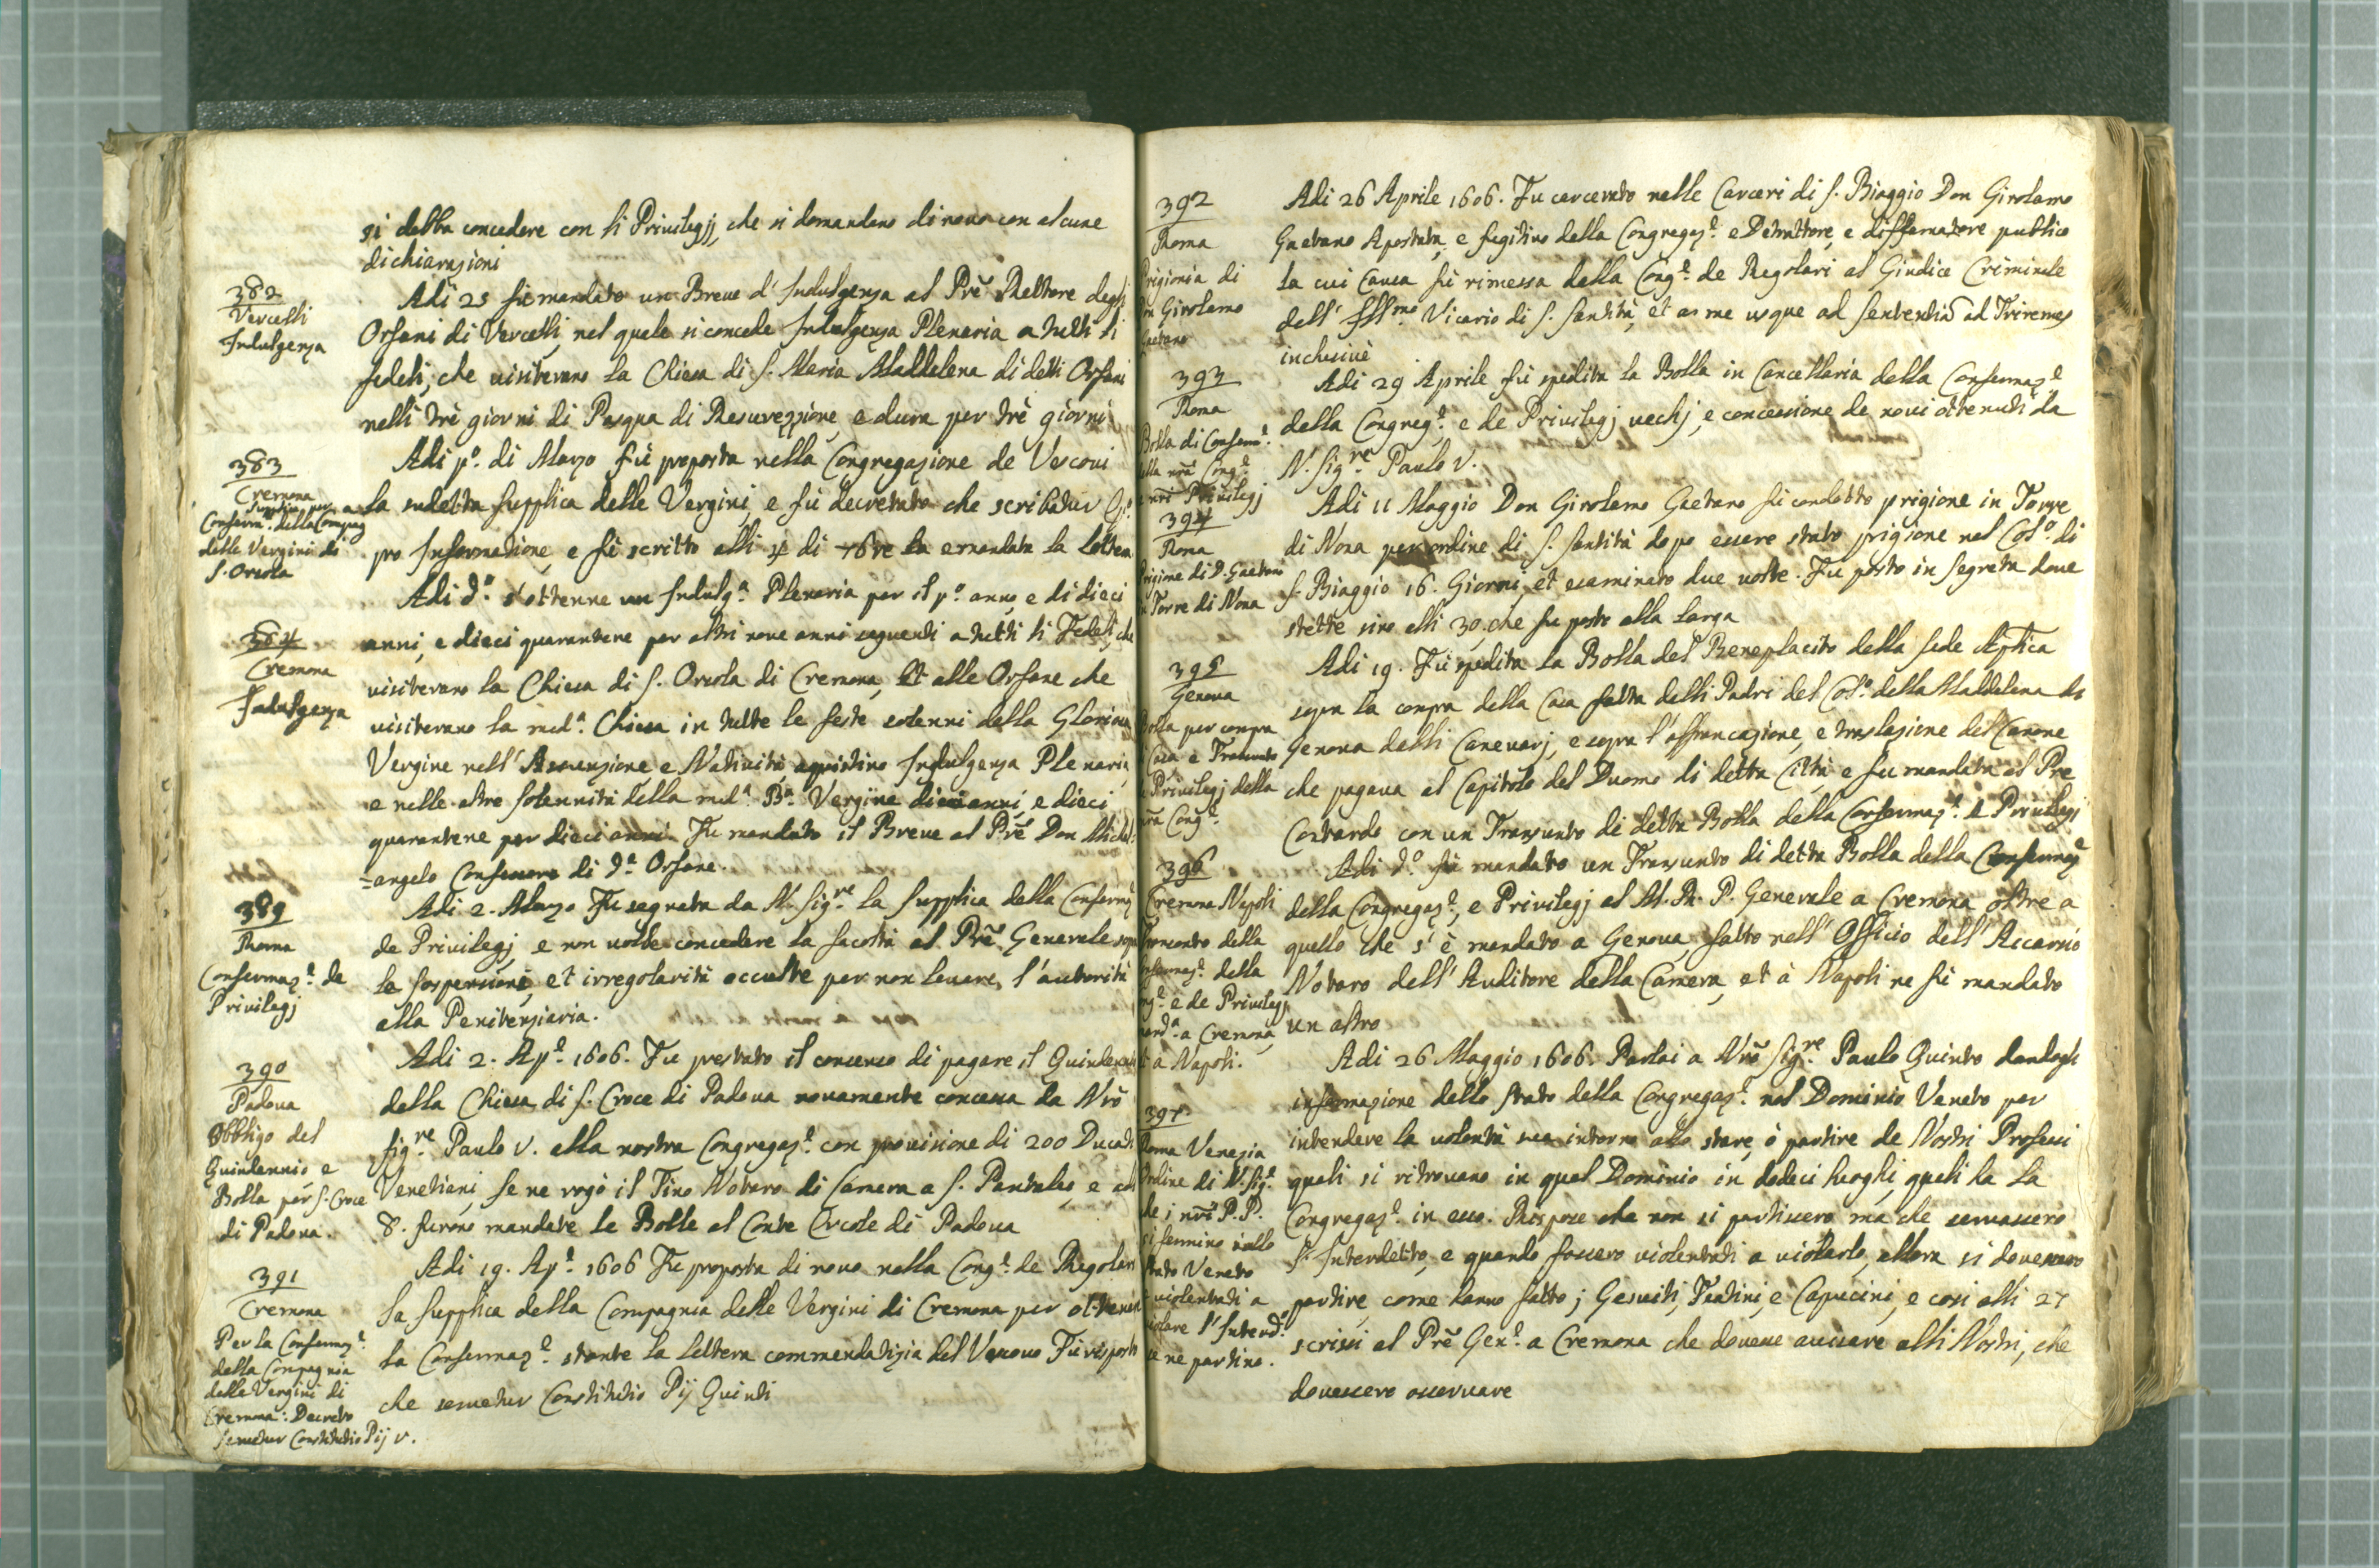 si debba concedere con li Privilegij, che si domandano di novo con alcune
dichiarazioni
382
Vercelli
Indulgenza
Adi 25 fù mandato un Breve d'Indulgenza al Prẽ Rettore degli
Orfani di Vercelli, nel quale si concede Indulgenza Plenaria a tutti li
fedeli, che visiterano la Chiesa di S. Maria Maddalena di detti Orfani
nelli trè giorni di Pasqua di Resurezzione, e dura per trè giorni
383
Cremona
Supplica per a
Conferm. della Compag
delle Vergini di
S. Orsola
Adi pº. di Marzo fù proposta nella Congregazione de Vescovi
la sudetta supplica delle Vergini, e fù decretato che scribatur
pro Informatione, e fù scritto alli di e mandata la lettera
384
Cremona
Indulgenza
Adi dº. s'ottenne un Indulgª. Plenaria per il pº. anno, e di dieci
anni, e dieci quarantene per altri nove anni seguenti a tutti li Fedeli, che
visiterano la Chiesa di S. Orsola di Cremona, et alle Orfane che
visiterano la medª. Chiesa in tutte le feste solenni della Gloriosa
Vergine nell'Assunzione, e Natività, aquistino Indulgenza Plenaria,
e nelle altre solennità della medª. Bª. Vergine dieci anni, e dieci
quarantene per dieci anni. Fu mandato il Breve al Prẽ Don Michel:
=angelo Confessore di dª. Orfane.
389
Roma
Confermazᵉ. de
Privilegj
Adi 2. Marzo Fu segnata da N. Sigʳᵉ. la supplica della Confermazᵉ
de Privilegj, e non volle concedere la facoltà al Prẽ Generale sopra
le sospensioni, et irregolarità occulte per non levare l'autorità
alla Penitenziaria.
390
Padova
Obbligo del
Quindennio, e
Bolla per S. Croce
di Padova.
Adi 2. Apᵉ. 1606. Fu prestato il consenso di pagare il Quindennio
della Chiesa di S. Croce di Padova novamente concessa da Nrõ
Sigʳᵉ. Paulo V. alla nostra Congregazᵉ. con provisione di 200 Ducati
Venetiani, se ne rogò il Fino Notaro di Camera a S. Pantaleo, e alli
8. furono mandate le Bolle al Conte Ercole di Padova
391
Cremona
Per la Confermazᵉ.
della Compagnia
delle Vergini di
Cremona: Decreto
servetur Constitutio Pij V.
Adi 19. Apᵉ. 1606 Fu proposta di novo nella Congᵉ. de Regolari
la supplica della Compagnia delle Vergini di Cremona per ottener
la Confermazᵉ. stante la lettera commendatizia del Vescovo Fu risposto
che servetur Constitutio Pij Quinti
392
Roma
Prigionia di
Don Girolamo
Gaetano
Adi 26 Aprile 1606. Fu carcerato nelle Carceri di S. Biaggio Don Girolamo
Gaetano Apostata, e fugitivo della Congregazᵉ. e Detrattore, e diffamatore publico
la cui causa fù rimessa dalla Congᵉ. de Regolari al Giudice Criminale
dell' Illᵐᵒ. Vicario di S. Santità, et as me usque ad sententiã ad Triremes
inclusivè
393
Roma
Bolla di Confermᵉ.
della nrã Congᵉ.
e nrĩ Privilegj
Adi 29 Aprile fù spedita la Bolla in Cancellaria della Confermazᵉ
della Congregᵉ. e de Privilegj vechj, e concessione de novi ottenuti da
N. Sigʳᵉ. Paulo V.
394
Roma
Prigione di D. Gaetano
in Torre di Nona
Adi 11 Maggio Don Girolamo Gaetano fù condotto prigione in Torre
di Nona per ordine di S. Santità dopo essere stato prigione nel Colº. di
S. Biaggio 16. Giorni, et esaminato due volte. Fu posto in segreta dove
stette sino alli 30. che fu posto alla larga
395
Genova
Bolla per compra
Casa e Transunto
e Privilegj della
nrã Congᵉ.
Adi 19. Fù spedita la Bolla del Beneplacito della Sede Aptica
sopra la compra della Casa fatta dalli Padri del Colº. della Maddalena di
Genova dalli Canevarj, e sopra l'affrancazione, e traslazione del Canone
che pagava al Capitolo del Duomo di detta Città, e fu mandata al Prẽ
Contardo con un Transunto di detta Bolla della Confermazᵉ. e Privilegj
396
Cremona Napoli
Transunto della
Confermazᵉ. della
Congᵉ. e de Privilegj
mandª. a Cremona,
et a Napoli.
Adi dº. fù mandato un Transunto di detta Bolla della Confermazᵉ
della Congregazᵉ, e Privilegj al M. R. P. Generale a Cremona oltre a
quello che s'è mandato a Genova, fatto nell' Officio dell' Accarsio
Notaro dell' Auditore della Camera, et à Napoli ne fù mandato
un altro
397
Roma Venezia
Ordine di N. Sigʳᵉ.
che i nrĩ P.P.
si fermino nello
stato Veneto
e violentati a
violare l'Interdº.
se ne partino.
Adi 26 Maggio 1606. Parlai a Nrõ Sigʳᵉ. Paulo Quinto dandogli
informazione dello stato della Congregazᵉ. nel Dominio Veneto per
intendere la volontà sua intorno allo stare, ò partire de Nostri Professi
quali si ritrovano in quel Dominio in dodeci luoghi, quali ha la
Congregazᵉ. in esso. Rispose che non si partissero, ma che servassero
l'Interdetto, e quando fossero violentati a violarlo, allora si dovessero
partire, come hanno fatto i Gesuiti, Teatini, e Capucini, e così alli 27
scrissi al Prẽ Genᵉ. a Cremona che dovesse avisare alli Nostri, che
dovessero osservare